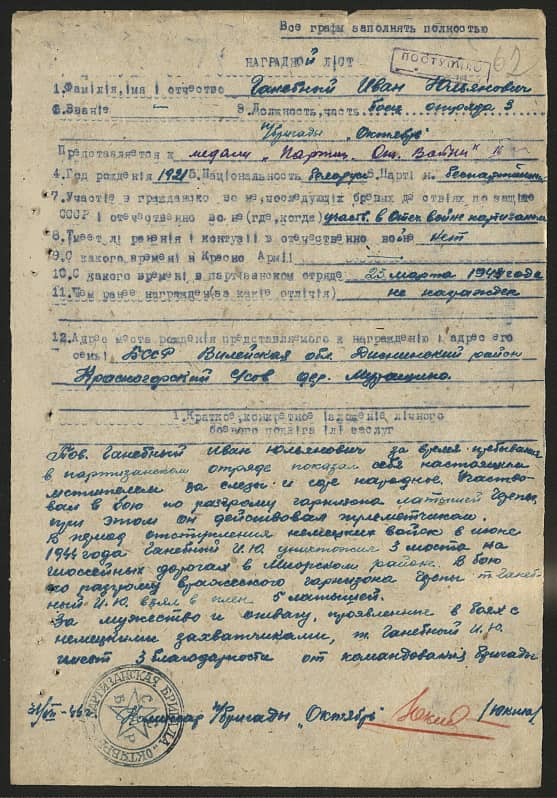 Все графы заполнять полностью
ПОСТУПИЛО
62
НАГРАДНОЙ ЛІСТ
1.Фамілія,імя і отчество Ганебный Иван Юльянович
2.Званіе — 3.Должность,часть боец отряда 3
п/бригады „Октябрь"
Представляется к медали „Партиз. От. Войны" II ст
4.Год рождения 1921 5.Національность белорус 6.Парті н. беспартийный
7.Участіе в гражданско во не,последующих боевых де ствіях по защіте
СССР і отечественно во не(где,когда) участв. в Отеч войне партизаном
8.Імеет лі ранения і контузіі в отечественно войне нет
9.С какого времені в Красно Арміі —
10.С какого времені в партізанском отряде 25 марта 1944 года
11.Чем ранее награжден(за какіе отлічія) не награжден
12.Адрес места рожденія представляемого к награжденію і адрес его
семьі БССР Вилейская обл. Дисненский район
Красногорский с/сов дер.
1.Краткое,конкретное ізложеніе лічного
боевого подвіга ілі заслуг
Тов. Ганебный Иван Юльянович за время пребывания
в партизанском отряде показал себя настоящим
мстителем за слезы и горе народное. Участво-
вал в бою по разгрому гарнизона латышей
при этом он действовал пулеметчиком.
В период отступления немецких войск в июне
1944 года Ганебный И.Ю. уничтожил 3 моста на
шоссейных дорогах в Миорском районе. В бою
по разгрому вражеского гарнизона т. Ганеб-
ный И.Ю. взял в плен 5 латышей.
За мужество и отвагу, проявленные в боях с
немецкими захватчиками, т. Ганебный И.Ю.
имеет 3 благодарности от командования бригады
ПАРТИЗАНСКАЯ БРИГАДА „ОКТЯБРЬ"
БССР
Комиссар п/бригады „Октябрь" /Юкин/